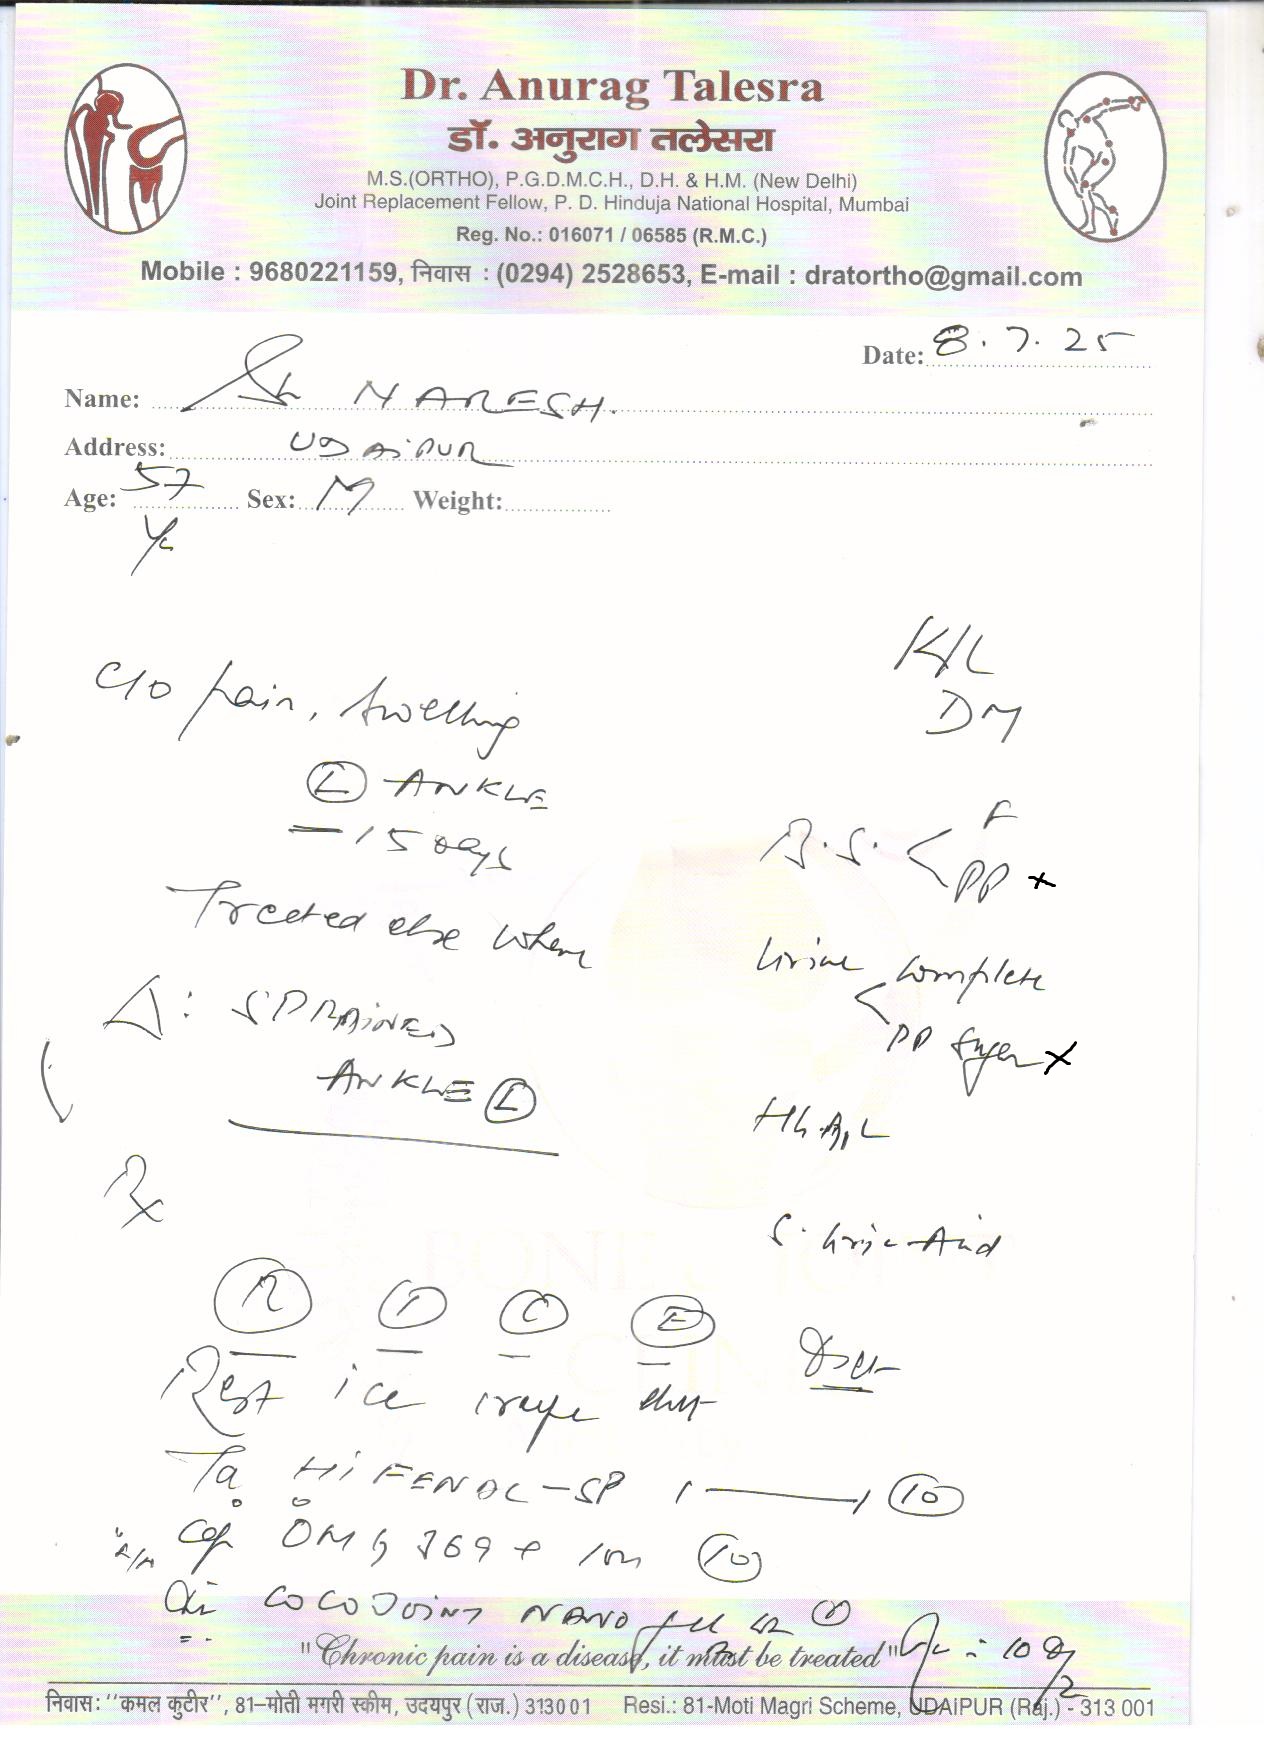 Dr. Anurag Talesra
डॉ. अनुराग तलेसरा
M.S.(ORTHO), P.G.D.M.C.H., D.H. & H.M. (New Delhi)
Joint Replacement Fellow, P. D. Hinduja National Hospital, Mumbai
Reg. No.: 016071 / 06585 (R.M.C.)
Mobile : 9680221159, निवास : (0294) 2528653, E-mail : dratortho@gmail.com
Date: 8.7.25
Name: Sh NARESH.
Address: UDAIPUR
Age: 57 Sex: M Weight:
K/L
DM
C/O pain, swelling
(L) ANKLE
— 15 days
Treated else where
Δ: SPRAINED
ANKLE (L)
B.S. < F
PP ×
Urine < complete
PP Sugar ×
HbA1C
S. Uric Acid
Rx
(R) (I) (C) (E)
Rest ice crepe
Ta HIFENAC-SP 1 — 1 (10)
Cap OMG 369 + 1 (10)
COCOJOINT NANO gel
"Chronic pain is a disease, it must be treated"
निवास: ''कमल कुटीर'', 81–मोती मगरी स्कीम, उदयपुर (राज.) 313001 Resi.: 81-Moti Magri Scheme, UDAIPUR (Raj.) - 313 001